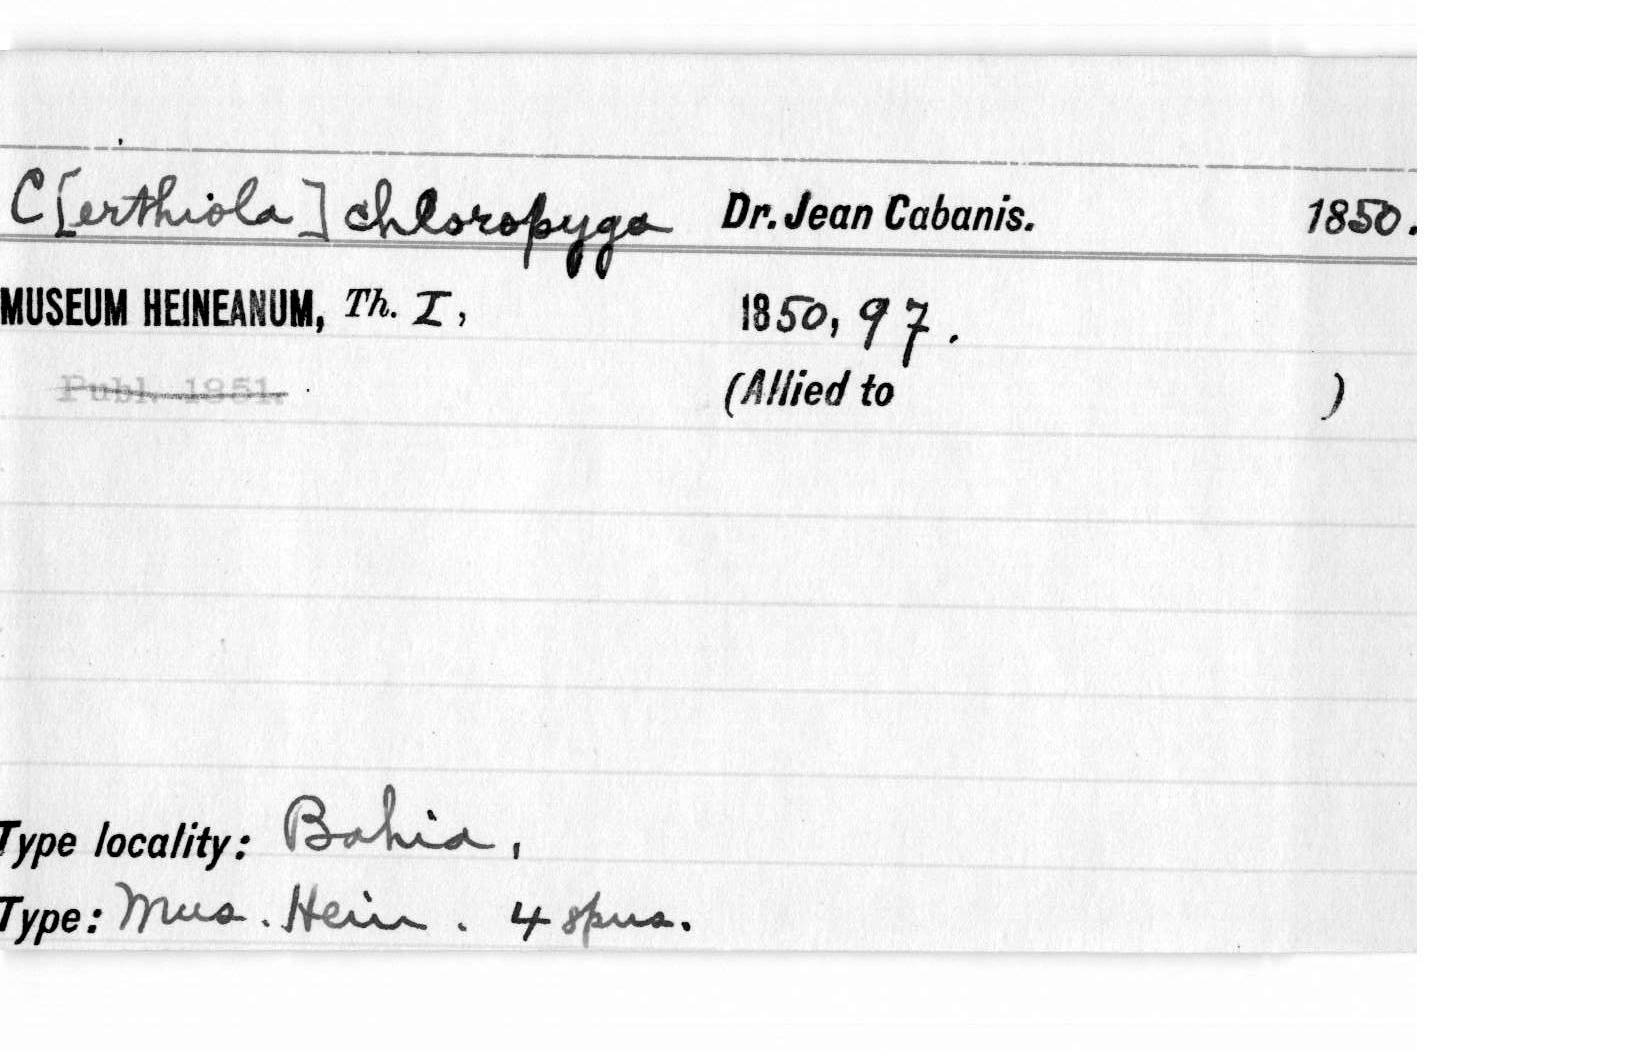 C[erthiola] chloropyga Dr. Jean Cabanis. 1850.
MUSEUM HEINEANUM, Th. I, 1850, 97.
Publ. 1851. (Allied to )
Type locality: Bahia,
Type: Mus. Hein. 4 spns.